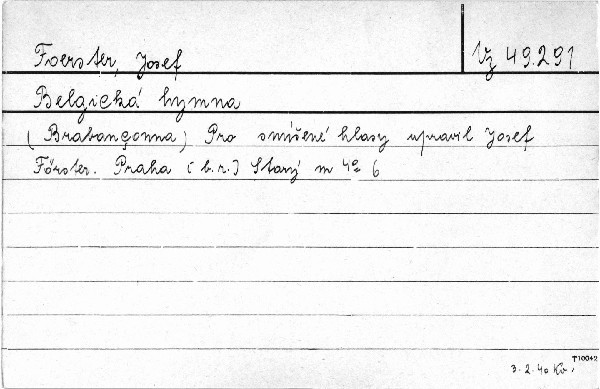 Foerster, Josef
Vz 49.291
Belgická hymna
(Brabançonna) Pro smíšené hlasy upravil Josef
Förster. Praha (b.r.) Starý m 4° 6
T10042
3.2.40 Kv.